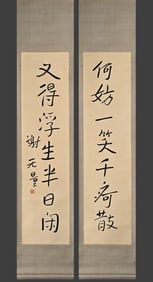 何妨一笑千痾散
又得浮生半日閒
謝无量